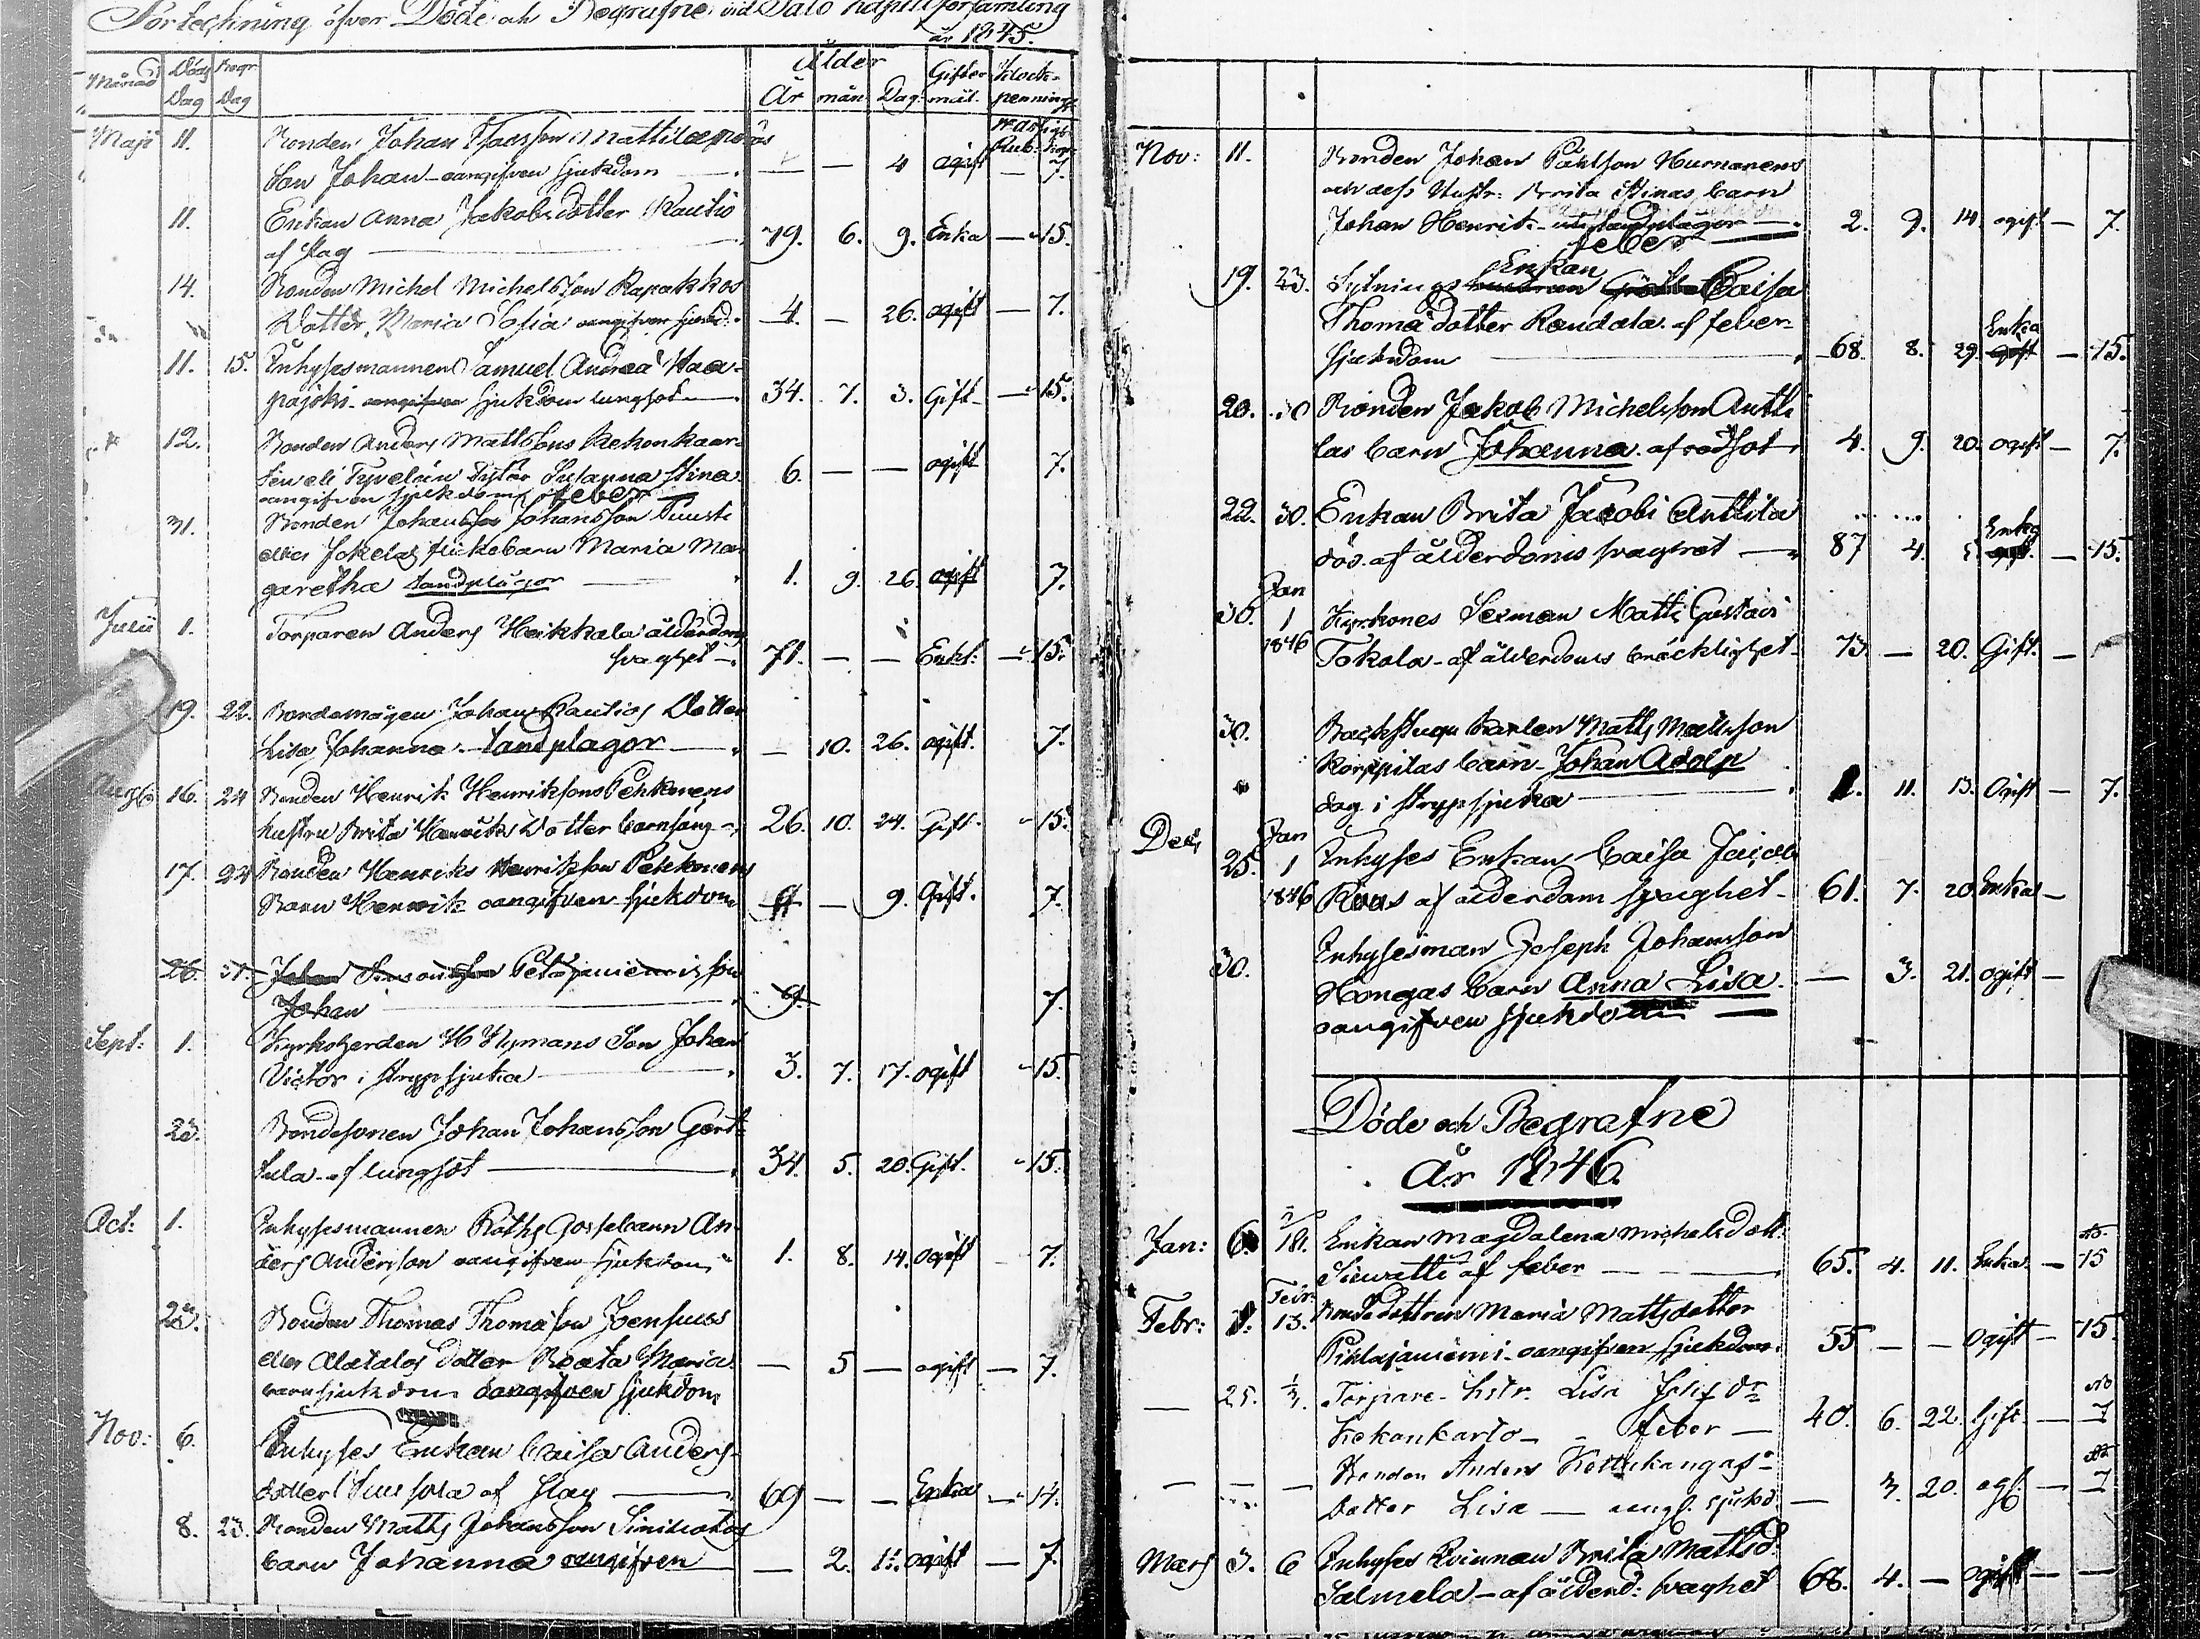 Förteckning öfver Döde och Begrafne vid Salo Kapell församling
år 1845.
Månad Döds Dag Begr Dag Ålder År mån Dag: Giftermål. Klockpenning
Rub: Kop:
Maji 11. Bonden Johan Isacsson Mattilanperäs
Son Johan oangifven sjukdom — — 4 ogift — 7.
11. Enkan Anna Jakobsdotter Rautio
af slag 79. 6. 9. Enka — 15.
14. Bonden Michel Michelsson Rapakkos
Dotter Maria Sofia oangifven sjukd. 4. — 26. ogift — 7.
11. 15. Inhysesmannen Samuel Andrea Haa-
pajoki oangifven sjukdom lungsot 34. 7. 3. Gift — 15.
12. Bonden Anders Mattssons Kekonkaar-
eli Dotter Susanna Stina 6. — — ogift 7.
oangifven sjukdom feber
31. Bonden Johan Johansson
eller Jokelas flickebarn Maria Mar-
garetha landplågor 1. 9. 26. ogift 7.
Julii 1. Torparen Anders Heikkala ålderdoms
svaghet 71. — — Enkl: — 15.
19. 22. Johan Rautios Dotter
Lisa Johanna landplagor — 10. 26. ogift. 7.
Aug 16. 24 Bonden Henrik Henriksons Pehkonens
hustru Brita Henriks Dotter barnsäng 26. 10. 24. Gift 15.
17. 24 Bonden Henriks Henrikson Pehkonens
Barn Henrik oangifven sjukdom — 9. Gift. 7.
26. 31. Johan Petäjäniemis son
Johan 9. 7.
Sept: 1. Kyrkoherden H Nymans Son Johan
Victor i strypsjuka 3. 7. 17. ogift 15.
23. Bondesonen Johan Johansson
af lungsot 34. 5. 20. Gift. 15.
Oct: 1. Inhysesmannen An-
ders Andersson oangifven sjukdom 1. 8. 14. ogift 7.
23. Bonden Thomas Thomasson Joensuus
eller Alatalos dotter Beata Maria — 5 — ogift — 7.
barnsjukdom oangifven sjukdom
Nov: 6. Inhyses Enkan Caisa Anders-
dotter af slag 69 — — Enka — 14.
8. 23. Bonden Matts Johansson
barn Johanna oangifven — 2. 11. ogift — 7.
Nov: 11. Bonden Johan Påhlson Hurnanens
och dess Hustr: Brita Stinas barn
Johan Henrik landplågor 2. 9. 14. ogift — 7.
feber
Enkan
19. 23. Sytnings hustrun Caisa
Thomadotter Raudala af feber Enka
sjukdom 68. 8. 29. Gift — 15.
20. 30 Bonden Jakob Michelsson Antti
las barn Johanna af rödsot 4. 9. 20. ogift — 7.
22. 30. Enkan Brita Jacobi Anttila Enka
dös. af ålderdoms svaghet 87 4. 5. — 15.
Jan
30. 1 Kyrkones Sexman Matts Gustavi
1846 Tokola af ålderdoms bräcklighet 73. — 20. Gift. —
30. Backstugu Karlen Matts Mattsson
Korppilas barn Johan Adolp
dog i strypsjuka 1. 11. 13. Ogift — 7.
Dec Jan
25. 1 Inhyses Enkan Caisa Jacob
1846 af ålderdom svaghet 61. 7. 20 Enka —
30. Inhysesman Joseph Johansson
Kongas barn Anna Lisa. — 3. 21. ogift —
oangifven sjukdom
Döde och Begrafne
År 1846.
Jan: 6. 18. Enkan Magdalena Michelsdott.
af feber 65. 4. 11. Enka — 15
Febr:
Febr: 1. 13. Bondedottren Maria Mattsdotter
oangifven sjukdom 55 — — Ogift — 15.
— 25. 1/3. Torpare hstr. Lisa Josefsdr
Kekonkarto feber 40. 6. 22. Gift — 7
— — — Bonden Anders Kettukangas
Dotter Lisa — oangf. sjukd. — 3. 20. ogf. — 7
Mars 3. 6 Inhyses Kvinnan Brita Mattsd.
Salmela — af ålderd: svaghet 68. 4. — ogift — —